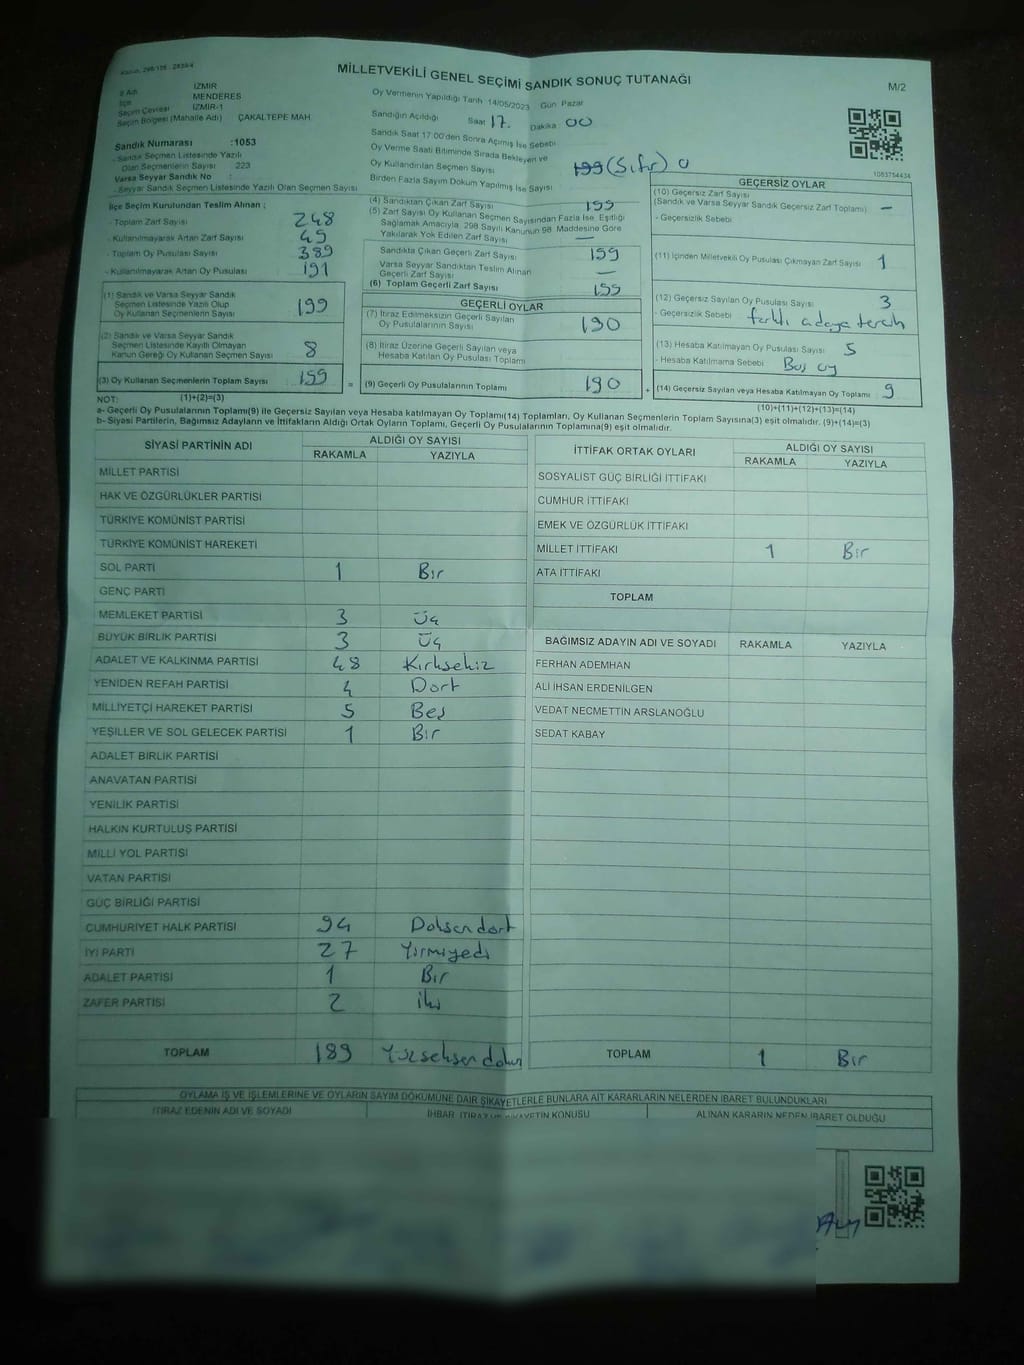 MİLLETVEKİLİ GENEL SEÇİMİ SANDIK SONUÇ TUTANAĞI
M/2
İl Adı İZMİR
İlçe MENDERES
Seçim Çevresi İZMİR-1
Seçim Bölgesi (Mahalle Adı) ÇAKALTEPE MAH
Sandık Numarası :1053
- Sandık Seçmen Listesinde Yazılı
Olan Seçmenlerin Sayısı : 223
Varsa Seyyar Sandık No :
- Seyyar Sandık Seçmen Listesinde Yazılı Olan Seçmen Sayısı
Oy Vermenin Yapıldığı Tarih 14/05/2023 Gün Pazar
Sandığın Açıldığı Saat 17. Dakika 00
Sandık Saat 17:00'den Sonra Açılmış İse Sebebi
Oy Verme Saati Bitiminde Sırada Bekleyen ve
Oy Kullandırılan Seçmen Sayısı 199 (Sıfır) 0
Birden Fazla Sayım Döküm Yapılmış İse Sayısı
1053754434
İlçe Seçim Kurulundan Teslim Alınan :
- Toplam Zarf Sayısı 248
- Kullanılmayarak Artan Zarf Sayısı 49
- Toplam Oy Pusulası Sayısı 389
- Kullanılmayarak Artan Oy Pusulası 191
(1) Sandık ve Varsa Seyyar Sandık
Seçmen Listesinde Yazılı Olup
Oy Kullanan Seçmenlerin Sayısı 199
(2) Sandık ve Varsa Seyyar Sandık
Seçmen Listesinde Kayıtlı Olmayan
Kanun Gereği Oy Kullanan Seçmen Sayısı 8
(3) Oy Kullanan Seçmenlerin Toplam Sayısı 199 =
(4) Sandıktan Çıkan Zarf Sayısı 199
(5) Zarf Sayısı Oy Kullanan Seçmen Sayısından Fazla İse, Eşitliği
Sağlamak Amacıyla 298 Sayılı Kanunun 98. Maddesine Göre
Yakılarak Yok Edilen Zarf Sayısı —
Sandıkta Çıkan Geçerli Zarf Sayısı 199
Varsa Seyyar Sandıktan Teslim Alınan
Geçerli Zarf Sayısı —
(6) Toplam Geçerli Zarf Sayısı 199
GEÇERLİ OYLAR
(7) İtiraz Edilmeksizin Geçerli Sayılan
Oy Pusulalarının Sayısı 190
(8) İtiraz Üzerine Geçerli Sayılan veya
Hesaba Katılan Oy Pusulası Toplamı
(9) Geçerli Oy Pusulalarının Toplamı 190 +
GEÇERSİZ OYLAR
(10) Geçersiz Zarf Sayısı
(Sandık ve Varsa Seyyar Sandık Geçersiz Zarf Toplamı) —
- Geçersizlik Sebebi
(11) İçinden Milletvekili Oy Pusulası Çıkmayan Zarf Sayısı 1
(12) Geçersiz Sayılan Oy Pusulası Sayısı 3
- Geçersizlik Sebebi farklı adaya tercih
(13) Hesaba Katılmayan Oy Pusulası Sayısı 5
- Hesaba Katılmama Sebebi Boş oy
(14) Geçersiz Sayılan veya Hesaba Katılmayan Oy Toplamı 9
NOT: (1)+(2)=(3)
(10)+(11)+(12)+(13)=(14)
a- Geçerli Oy Pusulalarının Toplamı(9) ile Geçersiz Sayılan veya Hesaba katılmayan Oy Toplamı(14) Toplamları, Oy Kullanan Seçmenlerin Toplam Sayısına(3) eşit olmalıdır. (9)+(14)=(3)
b- Siyasi Partilerin, Bağımsız Adayların ve İttifakların Aldığı Ortak Oyların Toplamı, Geçerli Oy Pusulalarının Toplamına(9) eşit olmalıdır.
SİYASİ PARTİNİN ADI ALDIĞI OY SAYISI
RAKAMLA YAZIYLA
MİLLET PARTİSİ
HAK VE ÖZGÜRLÜKLER PARTİSİ
TÜRKİYE KOMÜNİST PARTİSİ
TÜRKİYE KOMÜNİST HAREKETİ
SOL PARTİ 1 Bir
GENÇ PARTİ
MEMLEKET PARTİSİ 3 Üç
BÜYÜK BİRLİK PARTİSİ 3 Üç
ADALET VE KALKINMA PARTİSİ 48 Kırksekiz
YENİDEN REFAH PARTİSİ 4 Dört
MİLLİYETÇİ HAREKET PARTİSİ 5 Beş
YEŞİLLER VE SOL GELECEK PARTİSİ 1 Bir
ADALET BİRLİK PARTİSİ
ANAVATAN PARTİSİ
YENİLİK PARTİSİ
HALKIN KURTULUŞ PARTİSİ
MİLLİ YOL PARTİSİ
VATAN PARTİSİ
GÜÇ BİRLİĞİ PARTİSİ
CUMHURİYET HALK PARTİSİ 94 Doksandört
İYİ PARTİ 27 Yirmiyedi
ADALET PARTİSİ 1 Bir
ZAFER PARTİSİ 2 İki
TOPLAM 189 Yüzseksendokuz
İTTİFAK ORTAK OYLARI ALDIĞI OY SAYISI
RAKAMLA YAZIYLA
SOSYALİST GÜÇ BİRLİĞİ İTTİFAKI
CUMHUR İTTİFAKI
EMEK VE ÖZGÜRLÜK İTTİFAKI
MİLLET İTTİFAKI 1 Bir
ATA İTTİFAKI
TOPLAM
BAĞIMSIZ ADAYIN ADI VE SOYADI RAKAMLA YAZIYLA
FERHAN ADEMHAN
ALİ İHSAN ERDENİLGEN
VEDAT NECMETTİN ARSLANOĞLU
SEDAT KABAY
TOPLAM 1 Bir
OYLAMA İŞ VE İŞLEMLERİNE VE OYLARIN SAYIM DÖKÜMÜNE DAİR ŞİKAYETLERLE BUNLARA AİT KARARLARIN NELERDEN İBARET BULUNDUKLARI
İTİRAZ EDENİN ADI VE SOYADI
İHBAR, İTİRAZ VE ŞİKAYETİN KONUSU
ALINAN KARARIN NEDEN İBARET OLDUĞU